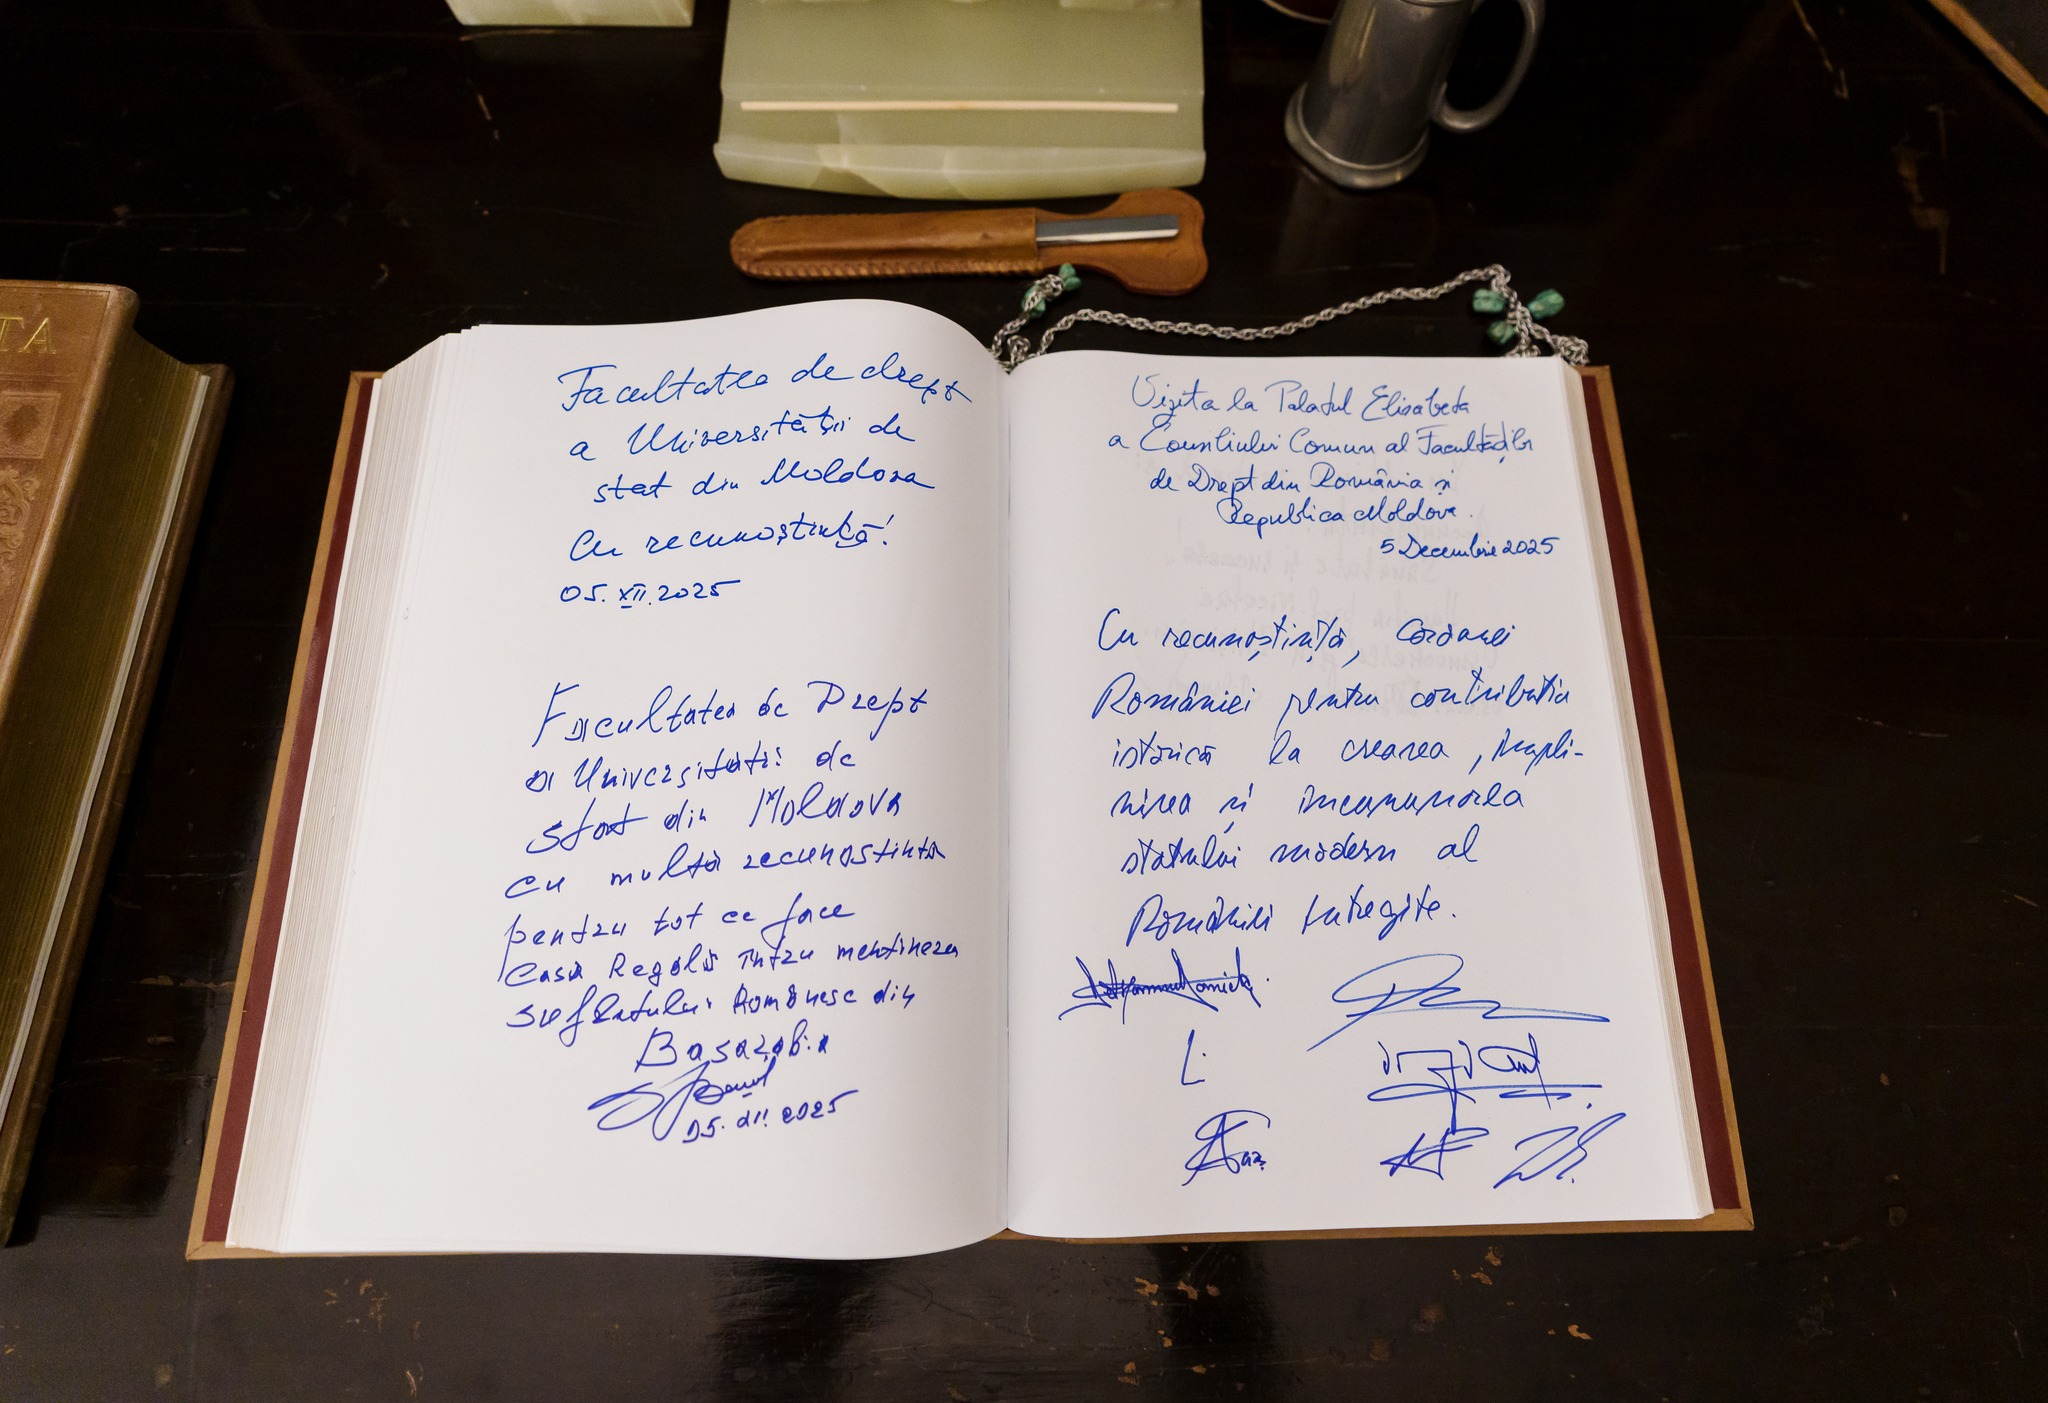 TA
Facultatea de drept
a Universității de
stat din Moldova
Cu recunoștință!
05.XII.2025
Facultatea de Drept
a Universitatii de
stat din Moldova
cu multă recunostinta
pentru tot ce face
Casa Regală întru mentinerea
sufletului Românesc din
Basarabia
05.XII.2025
Vizita la Palatul Elisabeta
a Consiliului Comun al Facultăților
de Drept din România și
Republica Moldova.
5 Decembrie 2025
Cu recunoștință, Coroanei
României pentru contribuția
istorică la crearea, împli-
nirea și încununarea
statului modern al
României Întregite.